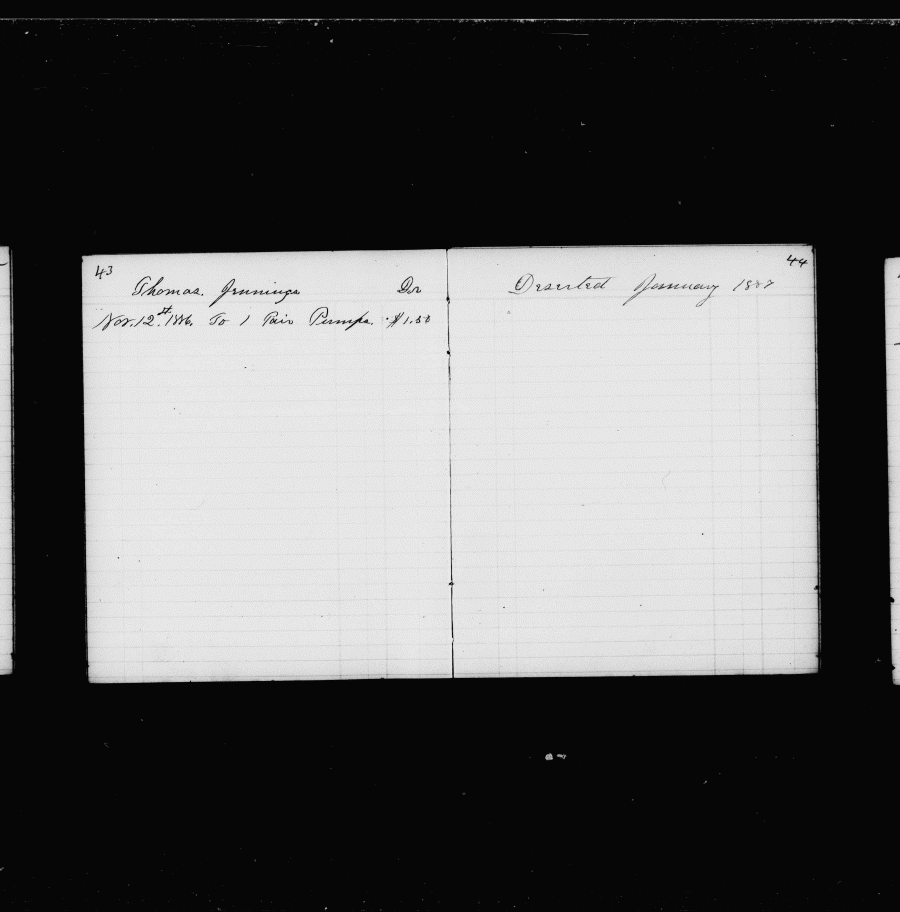 43
Thomas. Jennings Dr
Nov. 12st. 1886. To 1 Pair Pumps. $1.50
44
Deserted January 1887